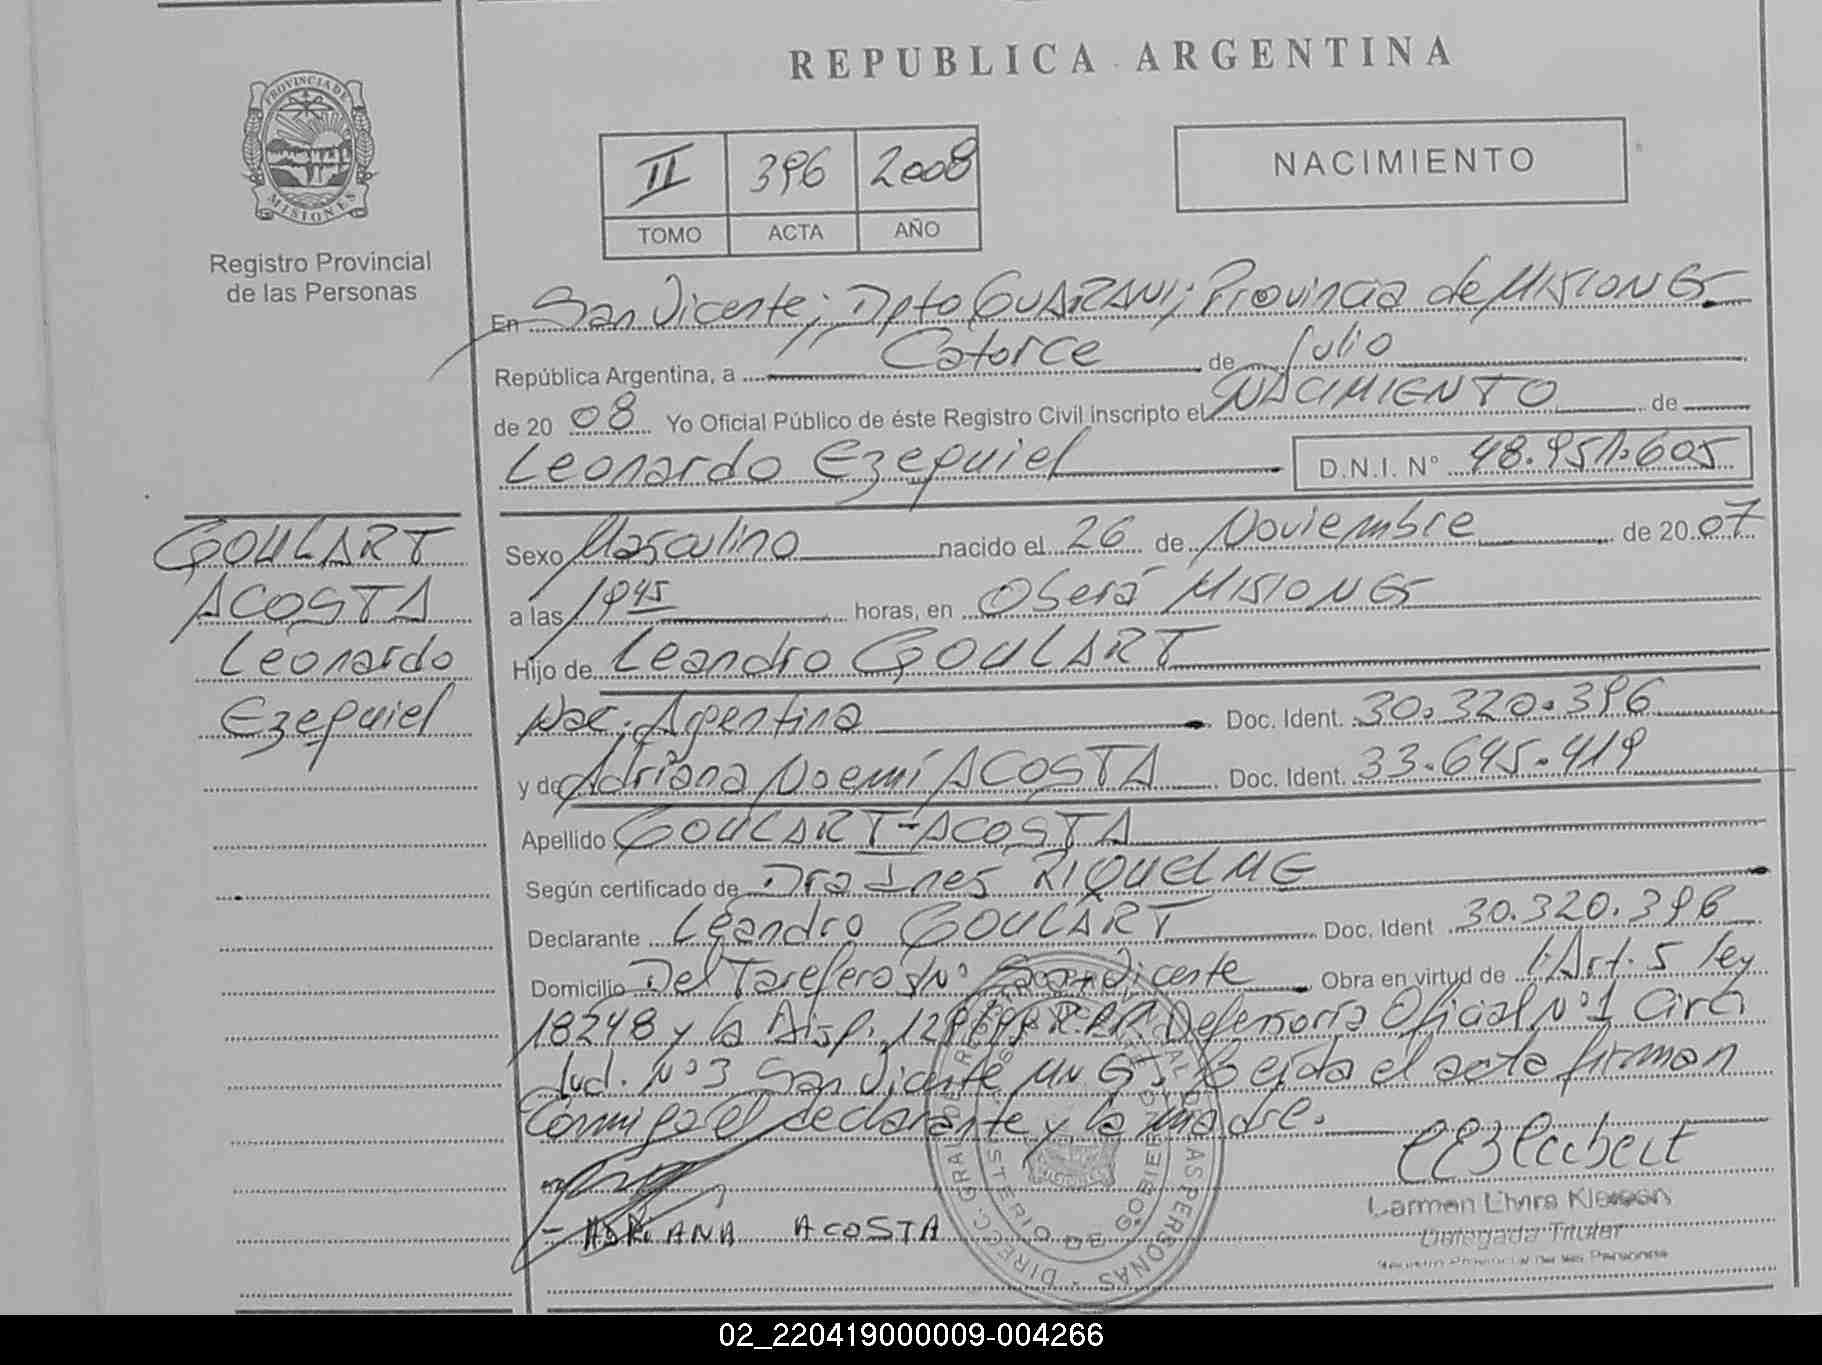 REPUBLICA ARGENTINA
PROVINCIA DE
MISIONES
Registro Provincial
de las Personas
II 396 2008
TOMO ACTA AÑO
NACIMIENTO
En San Vicente; Dpto GUARANI; Provincia de MISIONES
República Argentina, a Catorce de Julio
de 2008 Yo Oficial Público de éste Registro Civil inscripto el NACIMIENTO de
Leonardo Ezequiel D.N.I. N° 48.951.605
GOULART
ACOSTA
Leonardo
Ezequiel
Sexo Masculino nacido el 26 de Noviembre de 2007
a las 19 45 horas, en Oberá MISIONES
Hijo de Leandro GOULART
Nac. Argentina Doc. Ident. 30.320.396
y de Adriana Noemí ACOSTA Doc. Ident. 33.645.419
Apellido GOULART-ACOSTA
Según certificado de Dra Ines RIQUELME
Declarante Leandro GOULART Doc. Ident 30.320.396
Domicilio Del Tarefero S/N° San Vicente Obra en virtud de Art. 5 ley
18248 y la Disp. Defensoría Oficial N° 1 Circ
Jud. N° 3 San Vicente Leída el acta firman
conmigo el declarante y la madre.
ADRIANA ACOSTA
DIREC. GRAL DE REG. DE LAS PERSONAS
MINISTERIO DE GOBIERNO
Carmen Elvira
Delegada Titular
Registro Provincial de las Personas
02_220419000009-004266